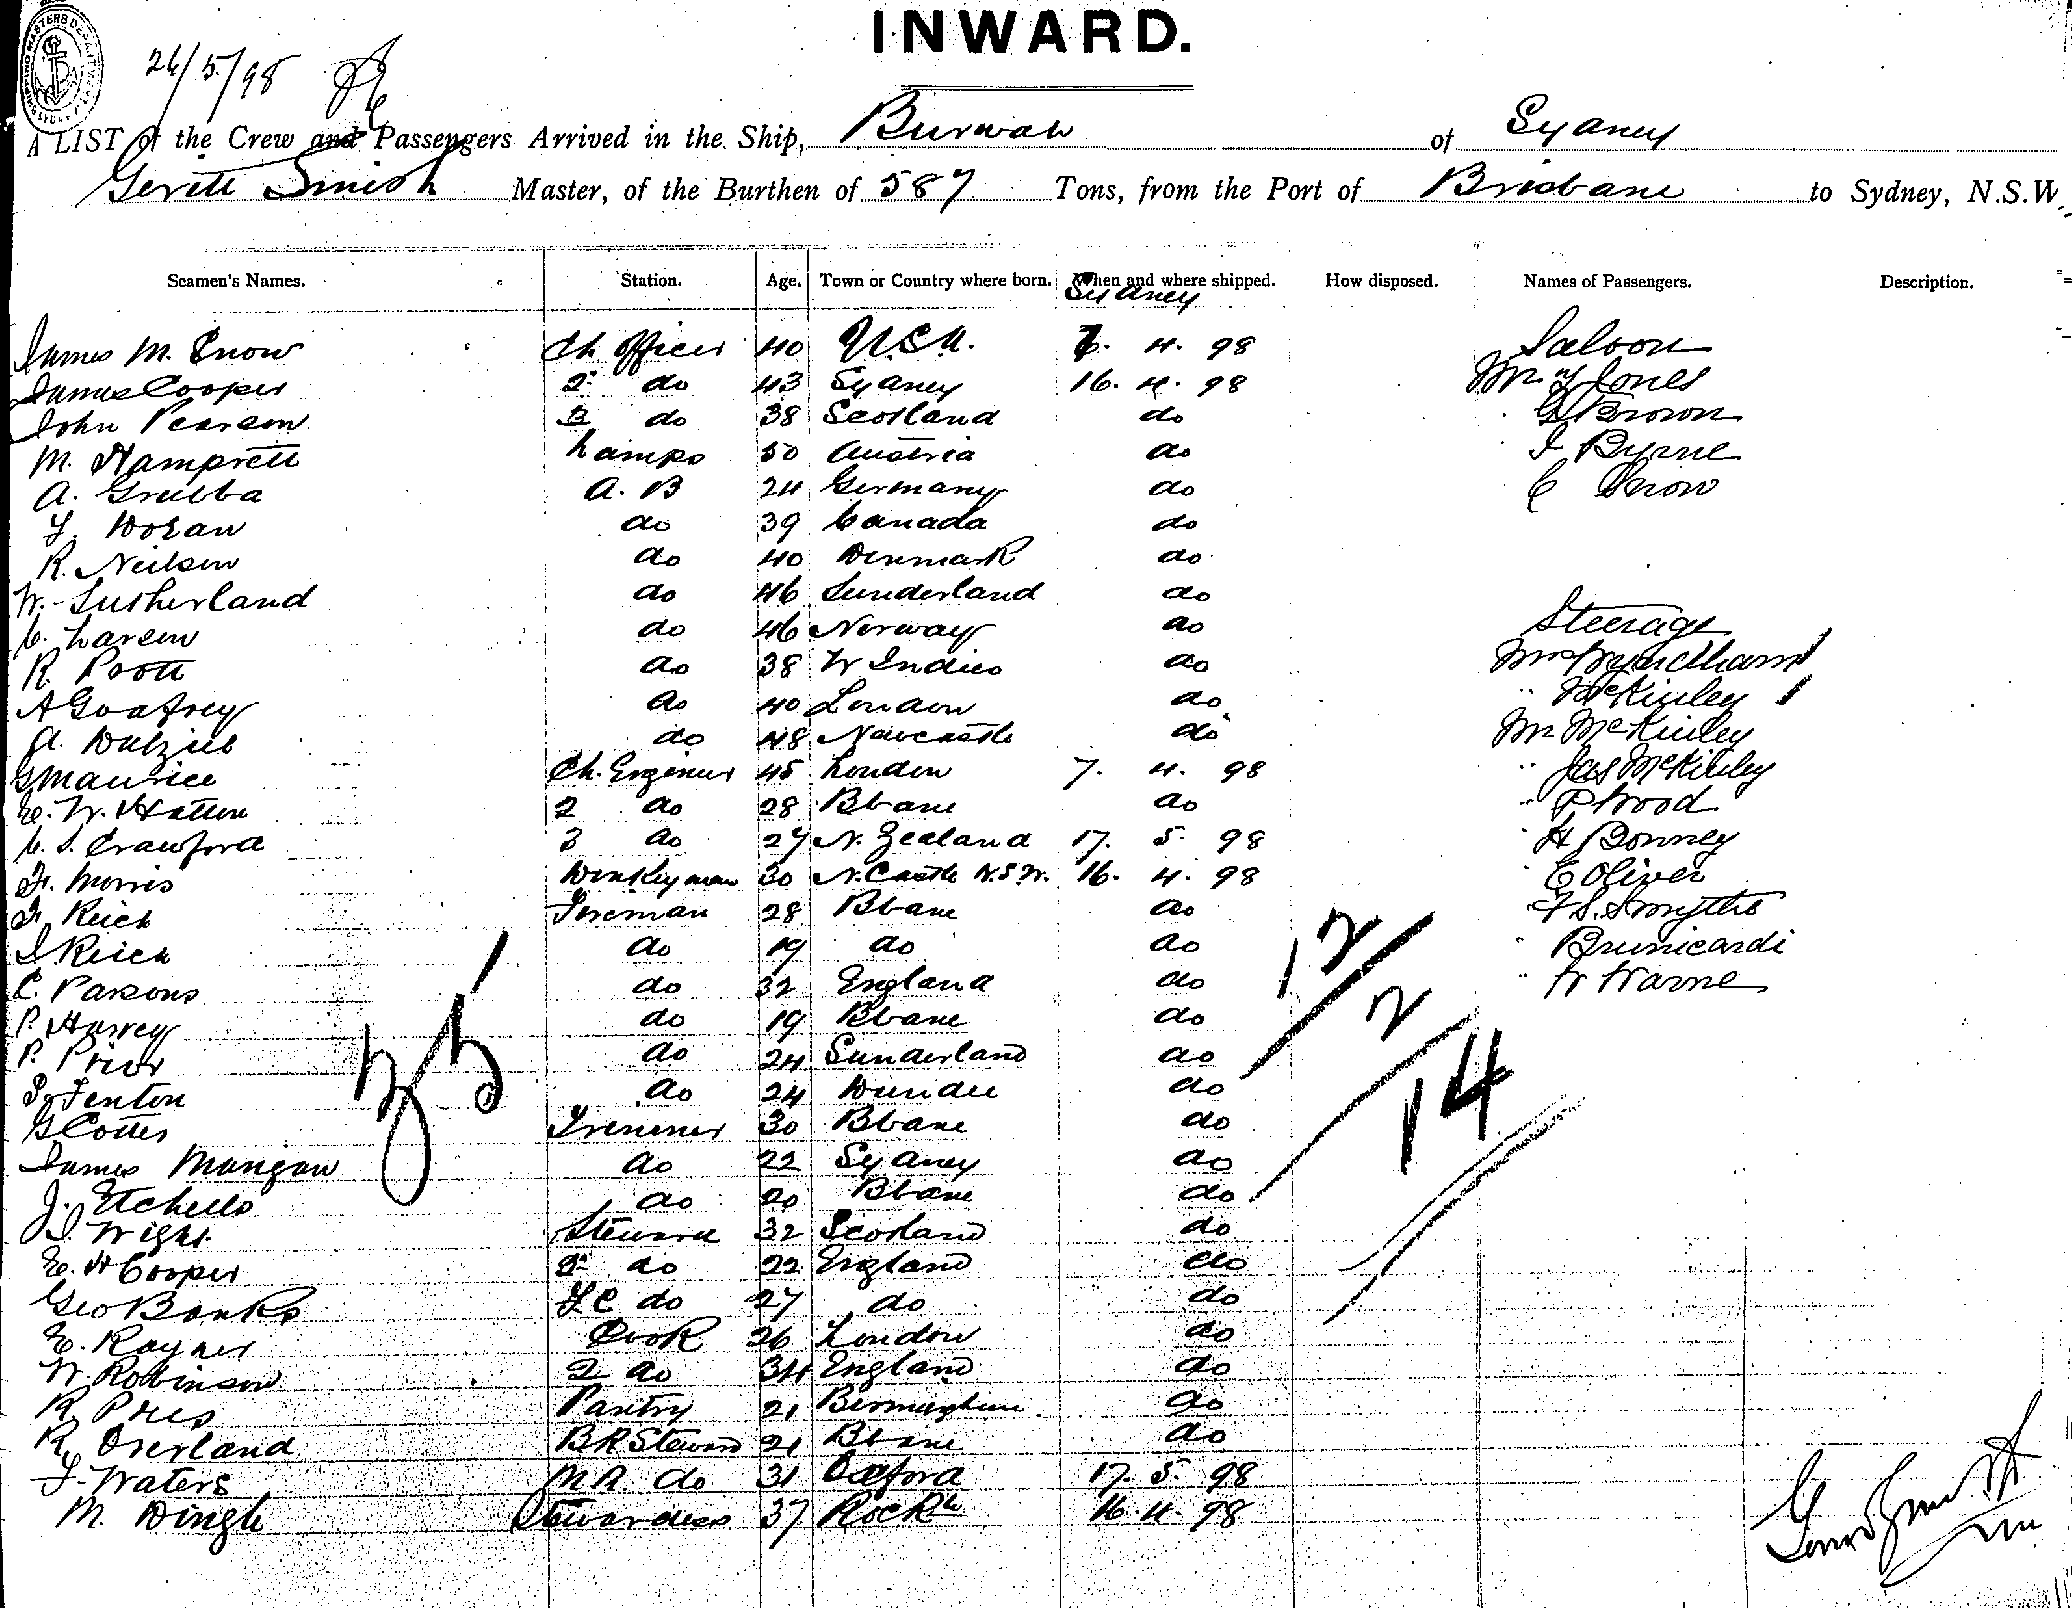 INWARD.
26/5/98
A LIST of the Crew and Passengers Arrived in the Ship, Burwah of Sydney
Geritt Smith Master, of the Burthen of 587 Tons, from the Port of Brisbane to Sydney, N.S.W.
Seamen's Names. Station. Age. Town or Country where born. When and where shipped. How disposed. Names of Passengers. Description.
Sydney
James M. Snow Ch Officer 40 U.S.A. 7. 4. 98 Saloon
James Cooper 2 do 43 Sydney 16. 4. 98 Mr Jones
John Pearson 3 do 38 Scotland do G Brown
M. Hamprett Lamps 50 Austria do J Byrne
A. Grubba A. B 24 Germany do C Snow
J. Doran do 39 Canada do
R. Neilsen do 40 Denmark do
W. Sutherland do 46 Sunderland do
C. Larsen do 46 Norway do Steerage
R. Pott do 38 W Indies do Mrs Wyndham 1
A Godfrey do 40 London do " McKinley 1
A. Dalziel do 48 Newcastle do Mr McKinley
G Maurice Ch. Engineer 45 London 7. 4. 98 " Jas McKinley
E. W. Hatton 2 do 28 Bbane do " P Wood
C. S. Crawford 3 do 27 N. Zealand 17. 5. 98 " H Bonney
F. Morris Donkeyman 30 N. Castle N.S.W. 16. 4. 98 " E Oliver
F. Reich Fireman 28 Bbane do " F S. Smythe
J Reich do 19 do do " Brunicardi
C. Parsons do 32 England do " W Warne
P. Harvey do 19 Bbane do
P. Prior do 24 Sunderland do
S. Fenton do 24 Dundee do
G Cotter Trimmer 30 Bbane do
James Mangan do 22 Sydney do
J. Etchells do 20 Bbane do
J. Wight Steward 32 Scotland do
E. H Cooper 2 do 22 England do
Geo Banks F C do 27 do do
E. Rayner Cook 26 London do
W. Robinson 2 do 34 England do
R Pres Pantry 21 Birmingham do
R. Overland B R Steward 21 Bbane do
F. Waters M R do 31 Oxford 17. 5. 98
M. Dingle Stewardess 37 Rockh 16. 4. 98
12
2
14